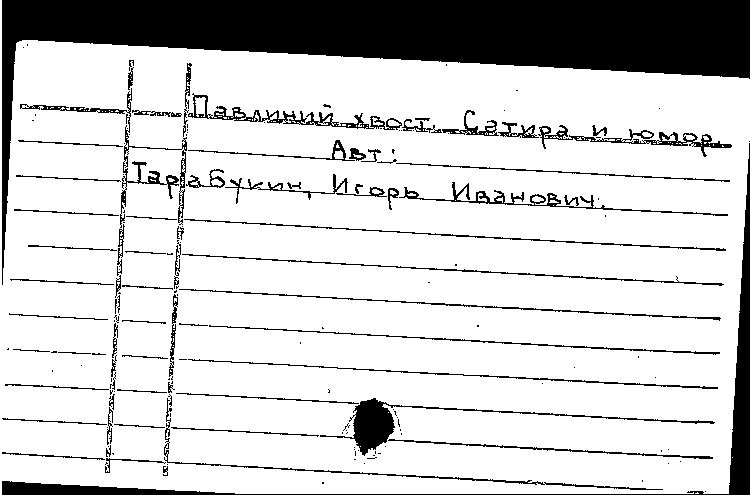 Павлиний хвост. Сатира и юмор.
Авт:
Тарабукин, Игорь Иванович.